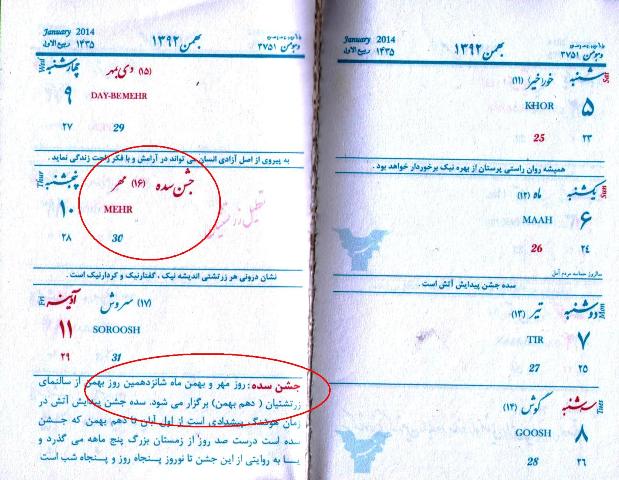 January 2014
ربیع الاول ۱۴۳۵
بهمن ۱۳۹۲
۳۷۵۱
شنبه
Sat
۵
۲۳
خور
(۱۱)
KHOR
25
همیشه روان راستی پرستان از بهره نیک برخوردار خواهد بود.
یکشنبه
Sun
۶
۲۴
ماه (۱۲)
MAAH
26
سالروز حماسه مردم آمل
سده جشن پیدایش آتش است.
دوشنبه
Mon
۷
۲۵
تیر (۱۳)
TIR
27
سه شنبه
Tues
۸
۲۶
گوش (۱۴)
GOOSH
28
January 2014
ربیع الاول ۱۴۳۵
بهمن ۱۳۹۲
۳۷۵۱
چهارشنبه
Wed
۹
۲۷
(۱۵) دی بمهر
DAY-BEMEHR
29
به پیروی از اصل آزادی انسان می تواند در آرامش و با فکر راحت زندگی نماید.
پنجشنبه
Thur
۱۰
۲۸
جشن سده (۱۶) مهر
MEHR
30
نشان درونی هر زرتشتی اندیشه نیک، گفتارنیک و کردارنیک است.
آدینه
Fri
۱۱
۲۹
(۱۷) سروش
SOROOSH
31
جشن سده: روز مهر و بهمن ماه شانزدهمین روز بهمن از سالنمای
زرتشتیان (دهم بهمن) برگزار می شود. سده جشن پیدایش آتش در
زمان هوشنگ پیشدادی است از اول آبان تا دهم بهمن که جشن
سده است درست صد روز از زمستان بزرگ پنج ماهه می گذرد و
یا به روایتی از این جشن تا نوروز پنجاه روز و پنجاه شب است